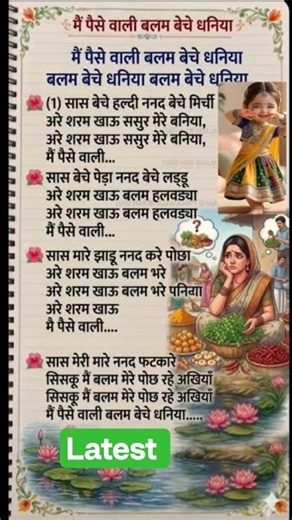 मैं पैसे वाली बलम बेचे धनिया
मैं पैसे वाली बलम बेचे धनिया
बलम बेचे धनिया बलम बेचे धनिया
(1) सास बेचे हल्दी ननद बेचे मिर्ची
अरे शरम खाऊ ससुर मेरे बनिया,
अरे शरम खाऊ ससुर मेरे बनिया,
मैं पैसे वाली...
सास बेचे पेड़ा ननद बेचे लड्डू
अरे शरम खाऊ बलम हलवइया
अरे शरम खाऊ बलम हलवइया
मैं पैसे वाली...
सास मारे झाडू ननद करे पोछा
अरे शरम खाऊ बलम भरे
अरे शरम खाऊ बलम भरे पनिया
अरे शरम खाऊ
मै पैसे वाली....
सास मेरी मारे ननद फटकारे
सिसकू मैं बलम मेरे पोछ रहे अखियाँ
सिसकू मैं बलम मेरे पोछ रहे अखियाँ
मैं पैसे वाली बलम बेचे धनिया.....
Latest